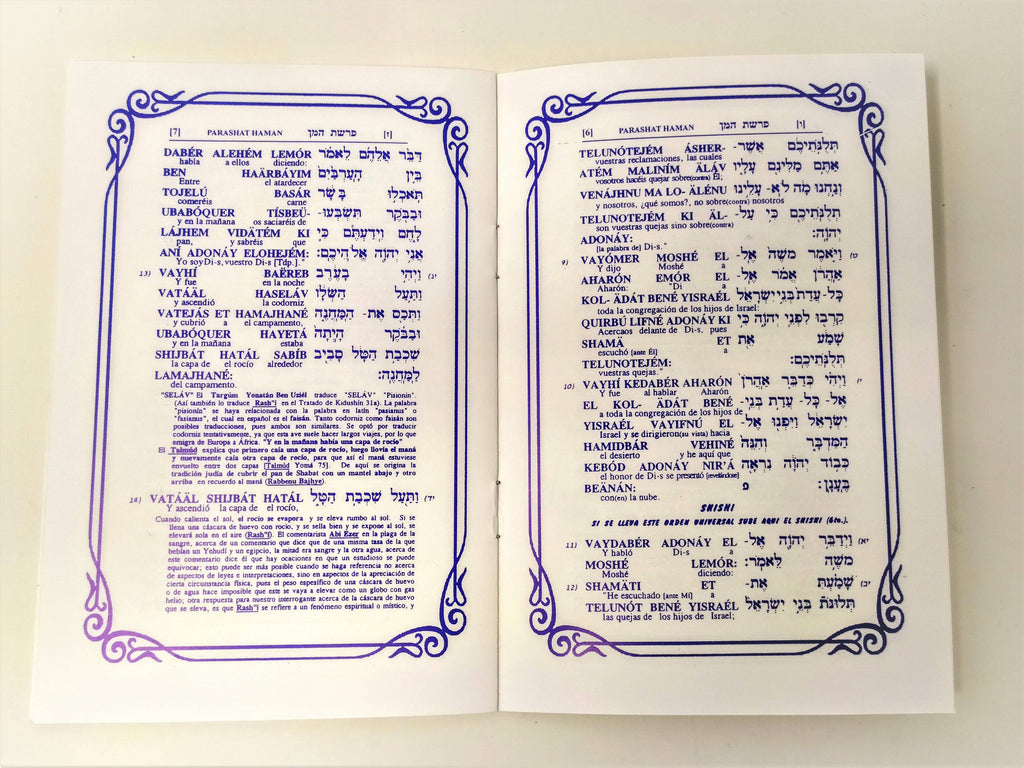 [6] PARASHAT HAMAN פרשת המן [ו]
TELUNÓTEJÉM ÁSHER- תְּלֻנֹּתֵיכֶם אֲשֶׁר-
vuestras reclamaciones, las cuales
ATÉM MALINÍM ÄLÁV אַתֶּם מַלִּינִם עָלָיו
vosotros hacéis quejar sobre(contra) Él;
VENÁJHNU MA LO- ÄLÉNU וְנַחְנוּ מָה לֹא- עָלֵינוּ
y nosotros, ¿qué somos?, no sobre(contra) nosotros
TELUNOTEJÉM KI ÄL- תְלֻנֹּתֵיכֶם כִּי עַל-
son vuestras quejas sino sobre(contra)
ADONÁY: יְהוָה:
[la palabra de] Di-s."
9) VAYÓMER MOSHÉ EL וַיֹּאמֶר מֹשֶׁה אֶל- ט)
Y dijo Moshé a
AHARÓN EMÓR EL אַהֲרֹן אֱמֹר אֶל-
Aharón: "Di a
KOL- ÄDÁT BENÉ YISRAÉL כָּל- עֲדַת בְּנֵי יִשְׂרָאֵל
toda la congregación de los hijos de Israel:
QUIRBÚ LIFNÉ ADONÁY KI קִרְבוּ לִפְנֵי יְהוָה כִּי
Acercaos delante de Di-s, pues
SHAMÄ ET שָׁמַע אֵת
escuchó [ante Él] a
TELUNOTEJÉM: תְּלֻנֹּתֵיכֶם:
vuestras quejas.
10) VAYHÍ KEDABÉR AHARÓN וַיְהִי כְּדַבֵּר אַהֲרֹן י)
Y fue al hablar Aharón
EL KOL - ÄDÁT BENÉ אֶל- כָּל- עֲדַת בְּנֵי-
a toda la congregación de los hijos de
YISRAÉL VAYIFNÚ EL יִשְׂרָאֵל וַיִּפְנוּ אֶל-
Israel y se dirigieron(su vista) hacia
HAMIDBÁR VEHINÉ הַמִּדְבָּר וְהִנֵּה
el desierto y he aquí que
KEBÓD ADONÁY NIR'Á כְּבוֹד יְהוָה נִרְאָה
el honor de Di-s se presentó (revelándose)
BEÄNÁN: פ בֶּעָנָן:
con(en) la nube.
SHISHI
SI SE LLEVA ESTE ORDEN UNIVERSAL SUBE AQUI EL SHISHI (6to.).
11) VAYDABÉR ADONÁY EL וַיְדַבֵּר יְהוָה אֶל- יא)
Y habló Di-s a
MOSHÉ LEMÓR: מֹשֶׁה לֵּאמֹר:
Moshé diciendo:
12) SHAMÁTI ET שָׁמַעְתִּי אֶת- יב)
"He escuchado [ante Mí] a
TELUNÓT BENÉ YISRAÉL תְּלוּנֹּת בְּנֵי יִשְׂרָאֵל
las quejas de los hijos de Israel;
[7] PARASHAT HAMAN פרשת המן [ז]
DABÉR ALEHÉM LEMÓR דַּבֵּר אֲלֵהֶם לֵאמֹר
habla a ellos diciendo:
BEN HAÄRBÁYIM בֵּין הָעַרְבַּיִם
Entre el atardecer
TOJELÚ BASÁR תֹּאכְלוּ בָשָׂר
comeréis carne
UBABÓQUER TÍSBEÚ- וּבַבֹּקֶר תִּשְׂבְּעוּ-
y en la mañana os saciaréis de
LÁJHEM VIDÄTÉM KI לָחֶם וִידַעְתֶּם כִּי
pan, y sabréis que
ANÍ ADONÁY ELOHEJÉM: אֲנִי יְהוָה אֱלֹהֵיכֶם:
Yo soy Di-s, vuestro Di-s [Tdp.]."
13) VAYHÍ BAËREB וַיְהִי בָעֶרֶב יג)
Y fue en la noche
VATÁÄL HASELÁV וַתַּעַל הַשְּׂלָו
y ascendió la codorniz
VATEJÁS ET HAMAJHANÉ וַתְּכַס אֶת- הַמַּחֲנֶה
y cubrió a el campamento,
UBABÓQUER HAYETÁ וּבַבֹּקֶר הָיְתָה
y en la mañana estaba
SHIJBÁT HATÁL SABÍB שִׁכְבַת הַטַּל סָבִיב
la capa de el rocío alrededor
LAMAJHANÉ: לַמַּחֲנֶה:
del campamento.
"SELÁV" El Targúm Yonatán Ben Uziél traduce "SELÁV" "Pisionín".
(Así también lo traduce Rash"í en el Tratado de Kidushín 31a). La palabra
"pisionín" se haya relacionada con la palabra en latín "pasianus" o
"fasianus", el cual en español es el faisán. Tanto codorniz como faisán son
posibles traducciones, pues ambos son similares. Se optó por traducir
codorniz tentativamente, ya que esta ave suele hacer largos viajes, por lo que
emigra de Europa a África. "Y en la mañana había una capa de rocío"
El Talmúd explica que primero caía una capa de rocío, luego llovía el maná
y nuevamente caía otra capa de rocío, para que así el maná estuviese
envuelto entre dos capas [Talmúd Yomá 75]. De aquí se origina la
tradición judía de cubrir el pan de Shabat con un mantel abajo y otro
arriba en recuerdo al maná (Rabbenu Bajhye).
14) VATÁÄL SHIJBÁT HATÁL וַתַּעַל שִׁכְבַת הַטָּל יד)
Y ascendió la capa de el rocío,
Cuando calienta el sol, el rocío se evapora y se eleva rumbo al sol. Si se
llena una cáscara de huevo con rocío, y se sella bien y se expone al sol, se
elevará sola en el aire (Rash"í). El comentarista Abí Ezer en la plaga de la
sangre, acerca de un comentario que dice que de una misma taza de la que
bebían un Yehudí y un egipcio, la mitad era sangre y la otra agua, acerca de
este comentario dice él que hay ocaciones en que un estudioso se puede
equivocar; esto puede ser más posible cuando se haga referencia no acerca
de aspectos de leyes e interpretaciones, sino en aspectos de la apreciación de
cierta circunstancia física, pues el peso espesífico de una cáscara de huevo
o de agua hace imposible que este se vaya a elevar como un globo con gas
helio; otra respuesta para nuestro interrogante acerca de la cáscara de huevo
que se eleva, es que Rash"í se refiere a un fenómeno espiritual o místico, y